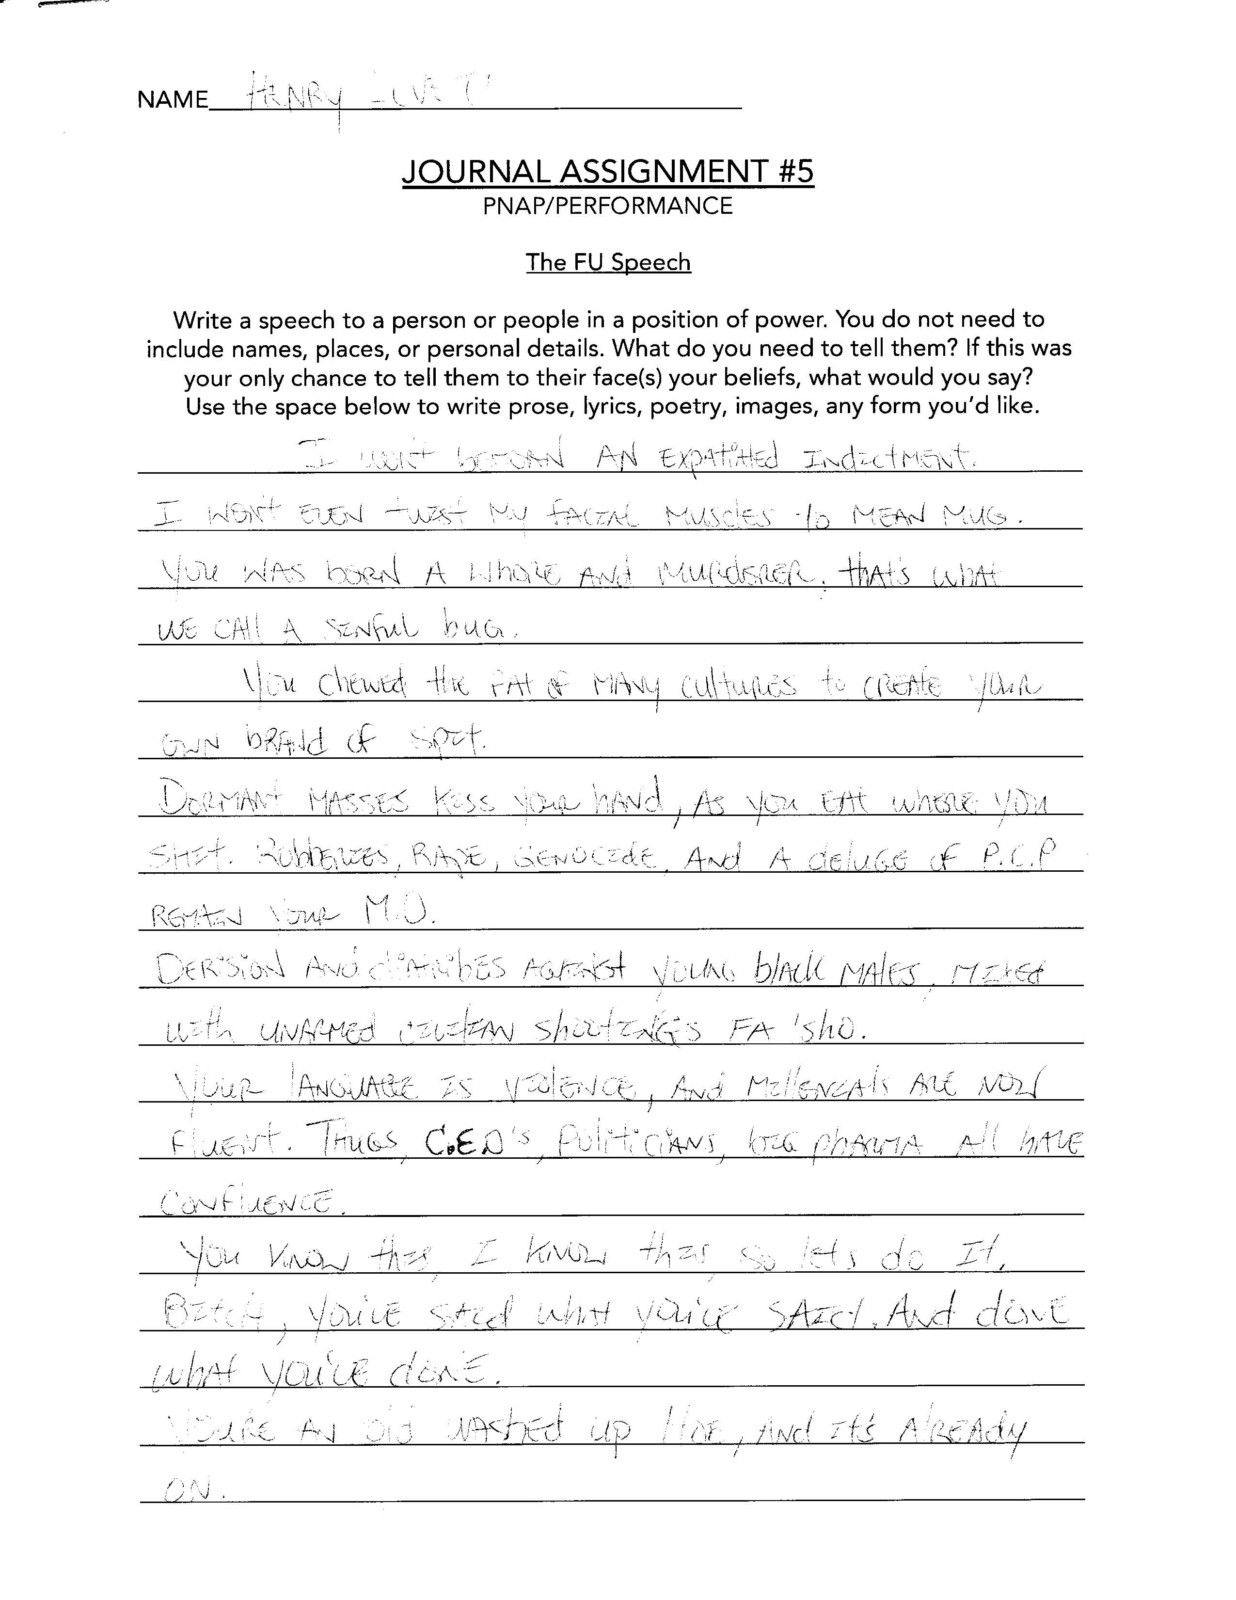 NAME HENRY
JOURNAL ASSIGNMENT #5
PNAP/PERFORMANCE
The FU Speech
Write a speech to a person or people in a position of power. You do not need to
include names, places, or personal details. What do you need to tell them? If this was
your only chance to tell them to their face(s) your beliefs, what would you say?
Use the space below to write prose, lyrics, poetry, images, any form you'd like.
I AN INdIctMENt.
I WON't EVEN twIst My fACIAL MUSclES to MEAN MUG.
You WAS bORN A WhORE ANd MURdERER. thAt's whAt
WE CAll A SINfuL buG.
You chewed the FAt OF MANy cultuRES to CREAtE youR
OWN bRANd of SpIt.
DORMANt MASSES KISS youR hANd, AS you EAt whERE you
ShIt. RobbERIES, RApE, GENOCIdE, ANd A dELUGE of P.C.P
REMAIN youR M.O.
DERISION ANd dIAtRIbES AGAINSt youNG blAck MAlES, MIXEd
wIth UNARMEd CIVILIAN ShootINGS FA 'ShO.
YouR lANGUAGE IS VIOlENCE, ANd MIllENIAlS ARE NOW
FluENt. ThuGS, C.E.O'S, PolITICIANS, bIG phARMA All hAVE
CONFluENCE.
You KNOW thIS, I KNOW thIS, so lEts do It.
BItCH, you'VE SAId whAt you'VE SAId. ANd doNE
whAt you'VE doNE.
You'RE AN Old WAShEd up HOE, ANd It's AlREAdy
ON.